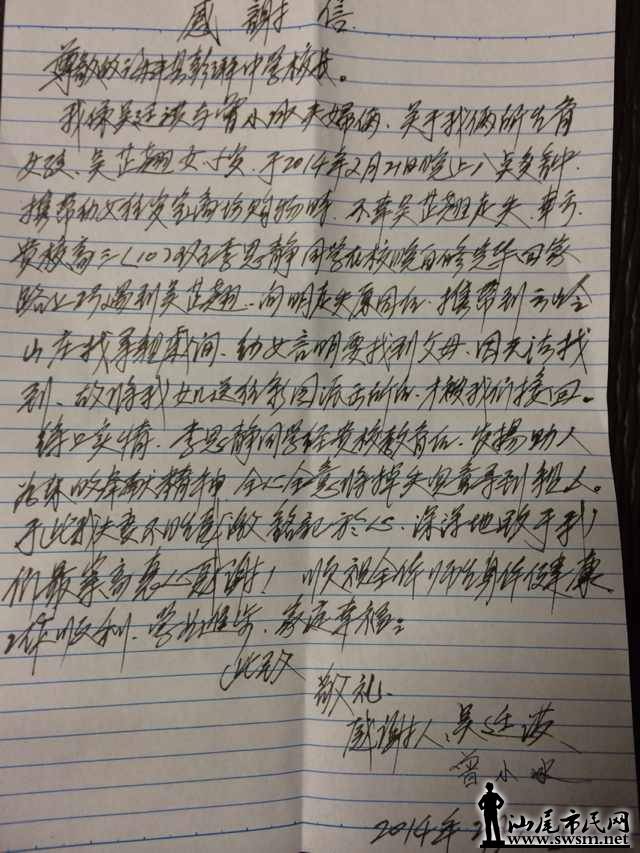 感謝信
尊敬的海丰县彭湃中学校长。
我係吴廷波与曾小冰夫婦俩、关于我俩所生育
女孩、吴芷翘女 岁、于2014年2月21日晚上八点多钟、
携帶幼女往 宝商场购物時、不幸吴芷翘走失、幸亏
贵校高三(10)班李思静同学在校晚自修完毕回家
路上巧遇到吴芷翘、问明走失原因后、携帶到云岭
山庄找尋親 间、幼女言明要找到父母、因无法找
到、故将我女儿送往 园派出所后、才被我们接回。
综口实情、李思静同学经贵校教育后、发揚助人
为 的奉献精神、全心全意将掉失 尋到親人。
于此我夫妻不 感激銘記於心、深深地致于我
们最崇高衷心感谢!顺祝全体师生身体健康
工作顺利、学业进步、家庭幸福:
此致
敬礼、
感谢人吴廷波
曾小冰
2014年2
汕尾市民网
www.swsm.net